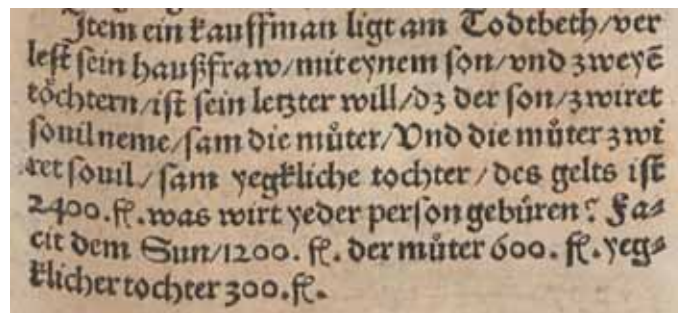 Item ein kauffman ligt am Todtbeth/ver
lest sein haußfraw/mit eynem son/vnd zweyē
töchtern/ist sein letzter will/dz der son/zwiret
souil neme/sam die můter/Vnd die můter zwi
ret souil/sam yegkliche tochter/des gelts ist
2400.fl.was wirt yeder person gebüren? Fa⸗
cit dem Sun/1200. fl. der můter 600. fl. yeg⸗
klicher tochter 300.fl.